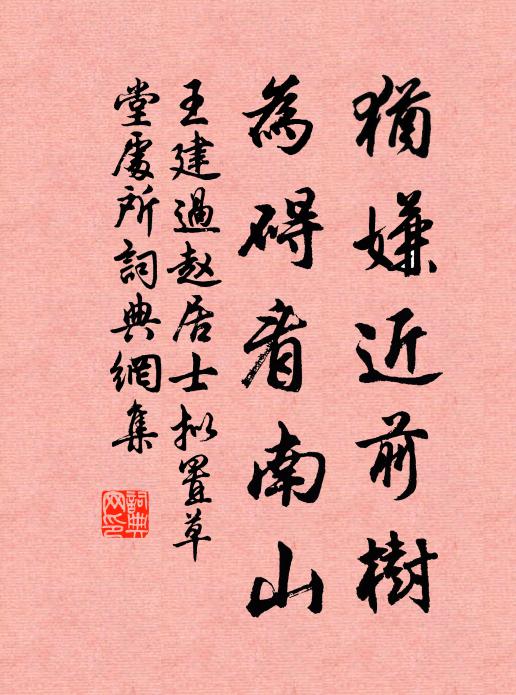 猶嫌近前樹
為碍看南山
王建過赵居士拟置草
堂處所詞典網集
詞典
网印